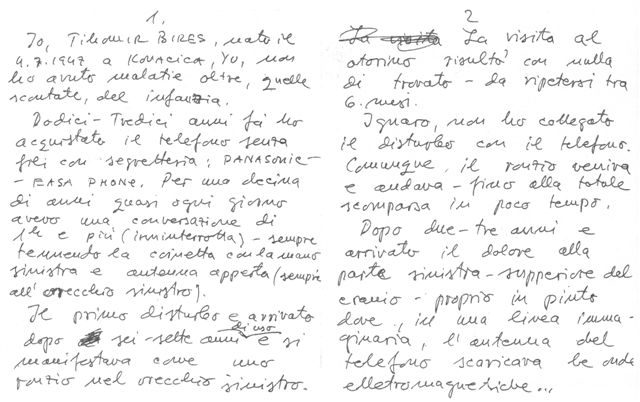 1.
Io, Tihomir BIRES, nato il
4.7.1947 a KOVACICA, YU, non
ho avuto malatie oltre, quelle
scontate, del infanzia.
Dodici-Tredici anni fa ho
acquistato il telefono senza
frei con segretteria: PANASONIC-
- EASA PHONE. Per una decina
di anni quasi ogni giorno
avevo una conversazione di
1h e più (inninterrotta) - sempre
tennendo la cornetta con la mano
sinistra e antenna apperta (sempre
all' orecchio sinistro).
Il primo disturbo e arrivato
dopo sei-sette anni di uso e si
manifestava come uno
ronzio nel orecchio sinistro.
2
La visita La visita al
otorino risultò con nulla
di trovato - da ripetersi tra
6. mesi.
Ignaro, non ho collegato
il disturbo con il telefono.
Comunque, il ronzio veniva
e andava - fino alla totale
scomparsa in poco tempo.
Dopo due-tre anni e
arrivato il dolore alla
parte sinistra-suppeiore del
cranio - proprio in punto
dove, in una linea imma-
ginaria, l'antenna del
telefono scaricava le onde
elletromagnetiche...